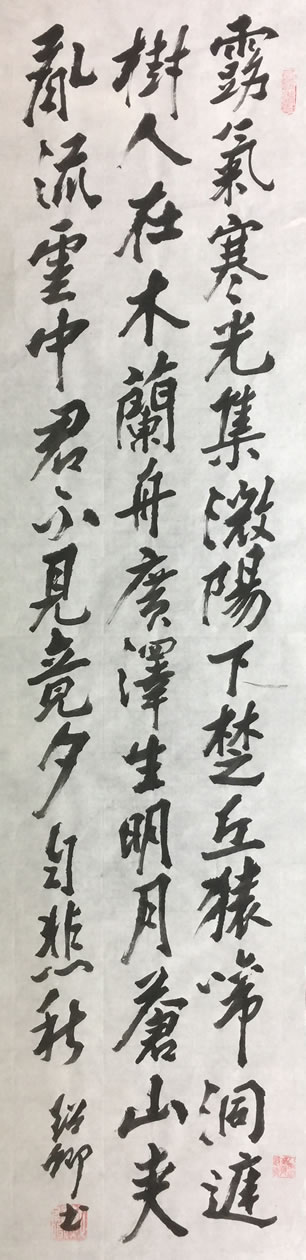 露氣寒光集微陽下楚丘猿啼洞庭
樹人在木蘭舟廣澤生明月蒼山夾
亂流雲中君不見竟夕自悲秋
紹卿书